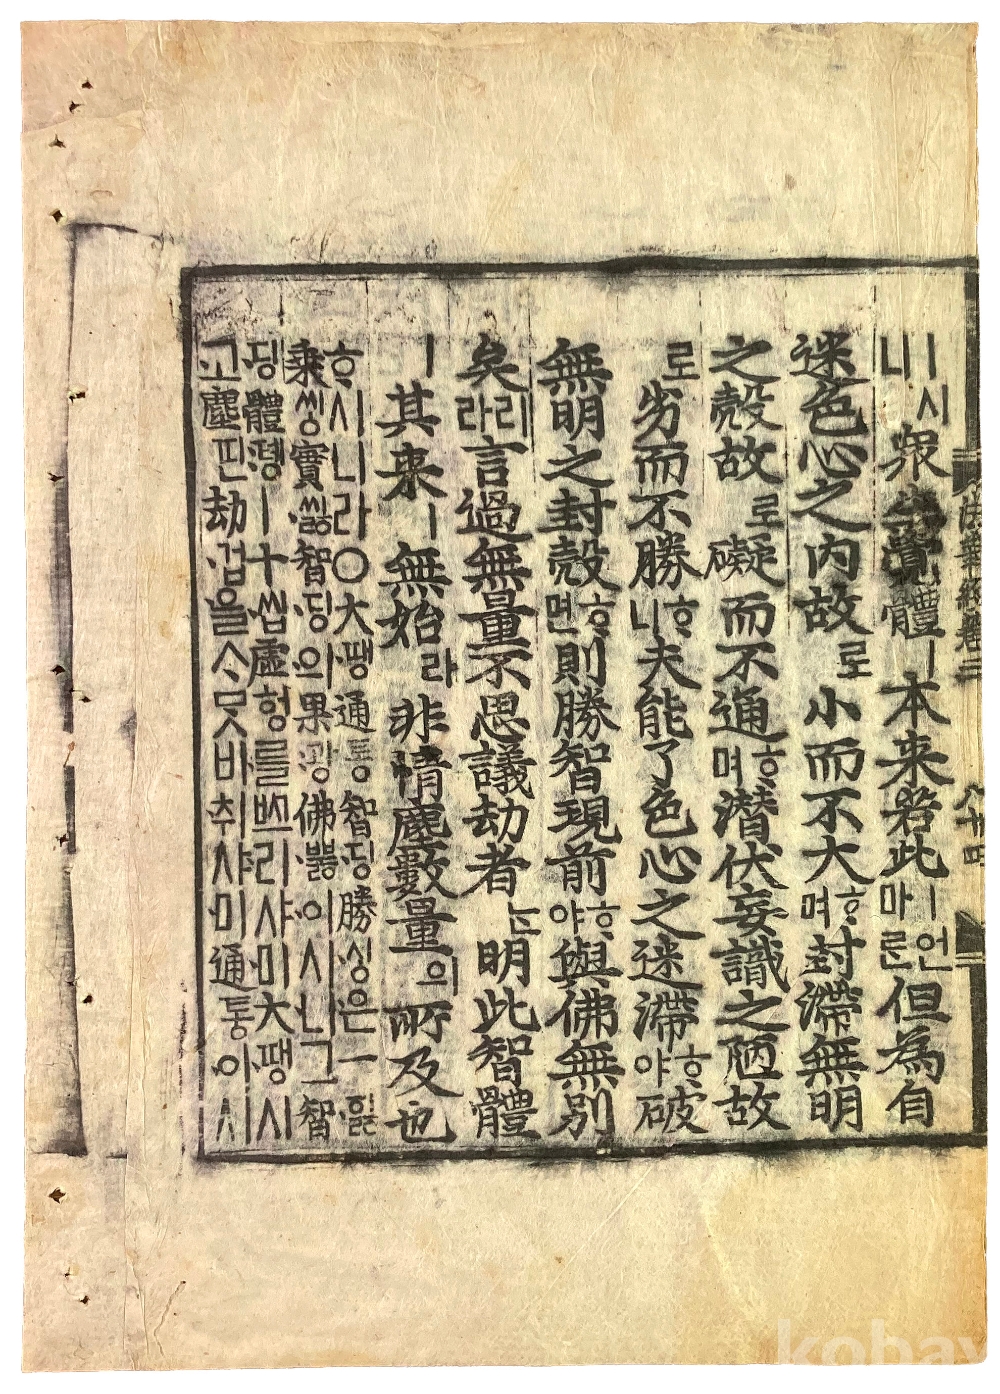 ㅣ시니 衆生覺體ㅣ 本来若此ㅣ언마론 但為自
迷色心之內故로 小而不大ᄒᆞ며 封滯無明
之殼故로 礙而不通ᄒᆞ며 潜伏妄識之陋故
로 劣而不勝ᄒᆞ니 夫能了色心之迷滯ᄒᆞ야 破
無明之封殼ᄒᆞ면 則勝智現前ᄒᆞ야 與佛無別
矣리라 言過無量不思議劫者ᄂᆞᆫ 明此智體
ㅣ 其来ㅣ 無始라 非情塵數量의 所及也
ᄒᆞ시니라 ○ 大땡通통智딩勝싱은 一ᅙᅵᇙ
乘씽實씨ᇙ智딩 果광佛뿌ᇙ이시니 그 智
딩體톙ㅣ 十씹虛헝를 ᄢᅳ리샤미 大땡시
고 塵띤劫겁을 ᄉᆞᄆᆞᆺ 비취샤미 通통이시
法華經卷三 八十四